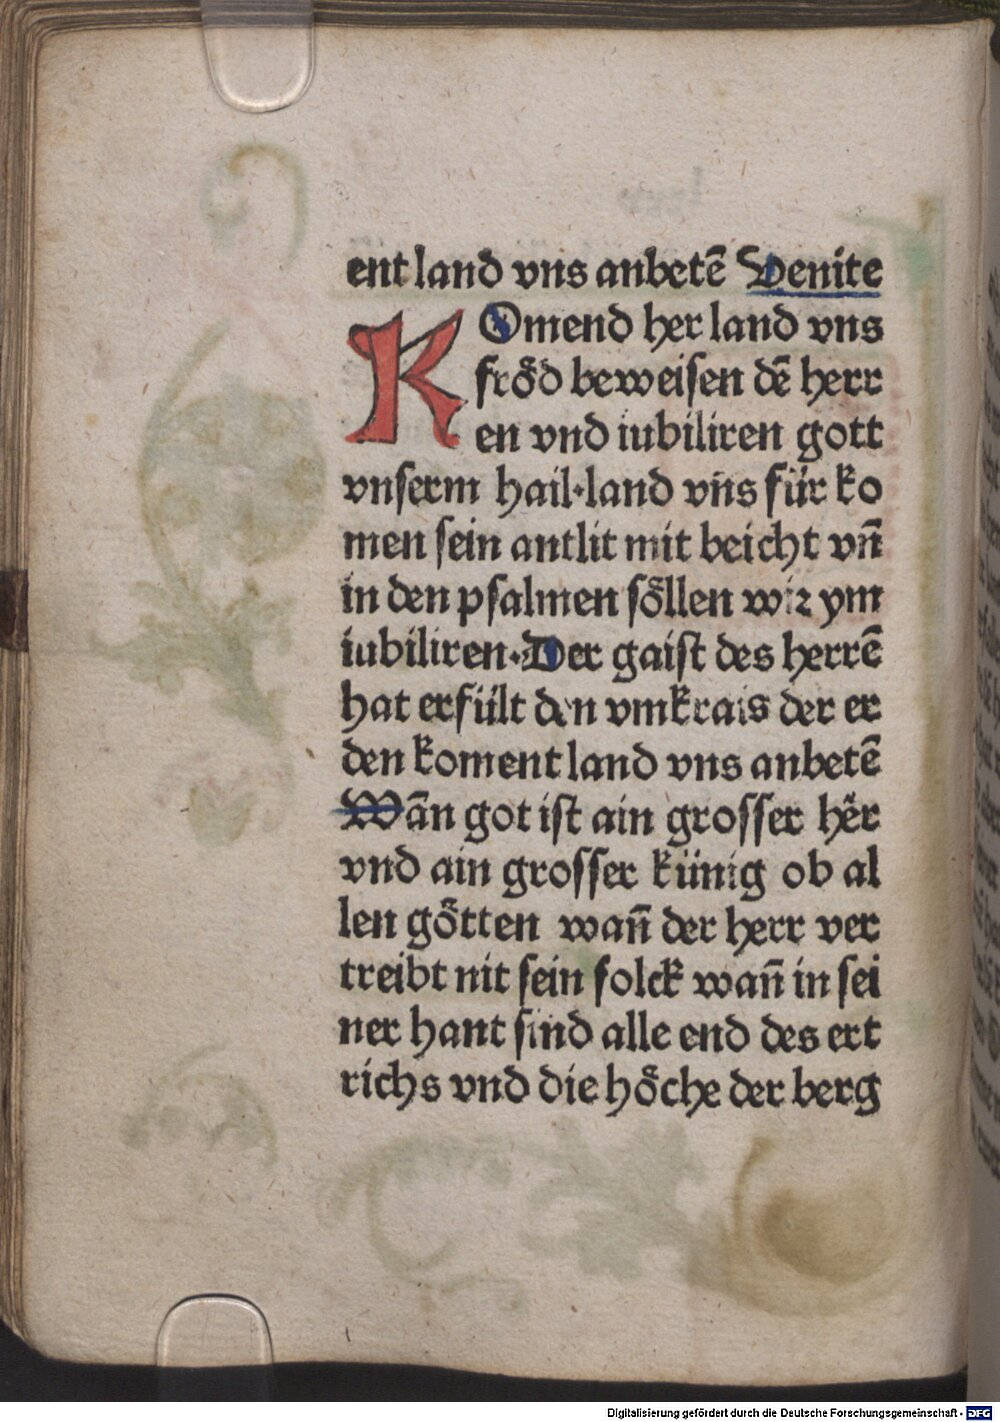 ent land vns anbetē Venite
KOmend her land vns
frőd beweisen dē herr
en vnd iubiliren gott
vnserm hail·land vns für ko
men sein antlit mit beicht vn̄
in den psalmen sőllen wir ym
iubiliren·Der gaist des herrē
hat erfült den vmkrais der er
den koment land vns anbetē
Wān got ist ain grosser hėr
vnd ain grosser künig ob al
len gőtten wan̄ der herr ver
treibt nit sein folck wan̄ in sei
ner hant sind alle end des ert
richs vnd die hőche der berg
Digitalisierung gefördert durch die Deutsche Forschungsgemeinschaft - DFG